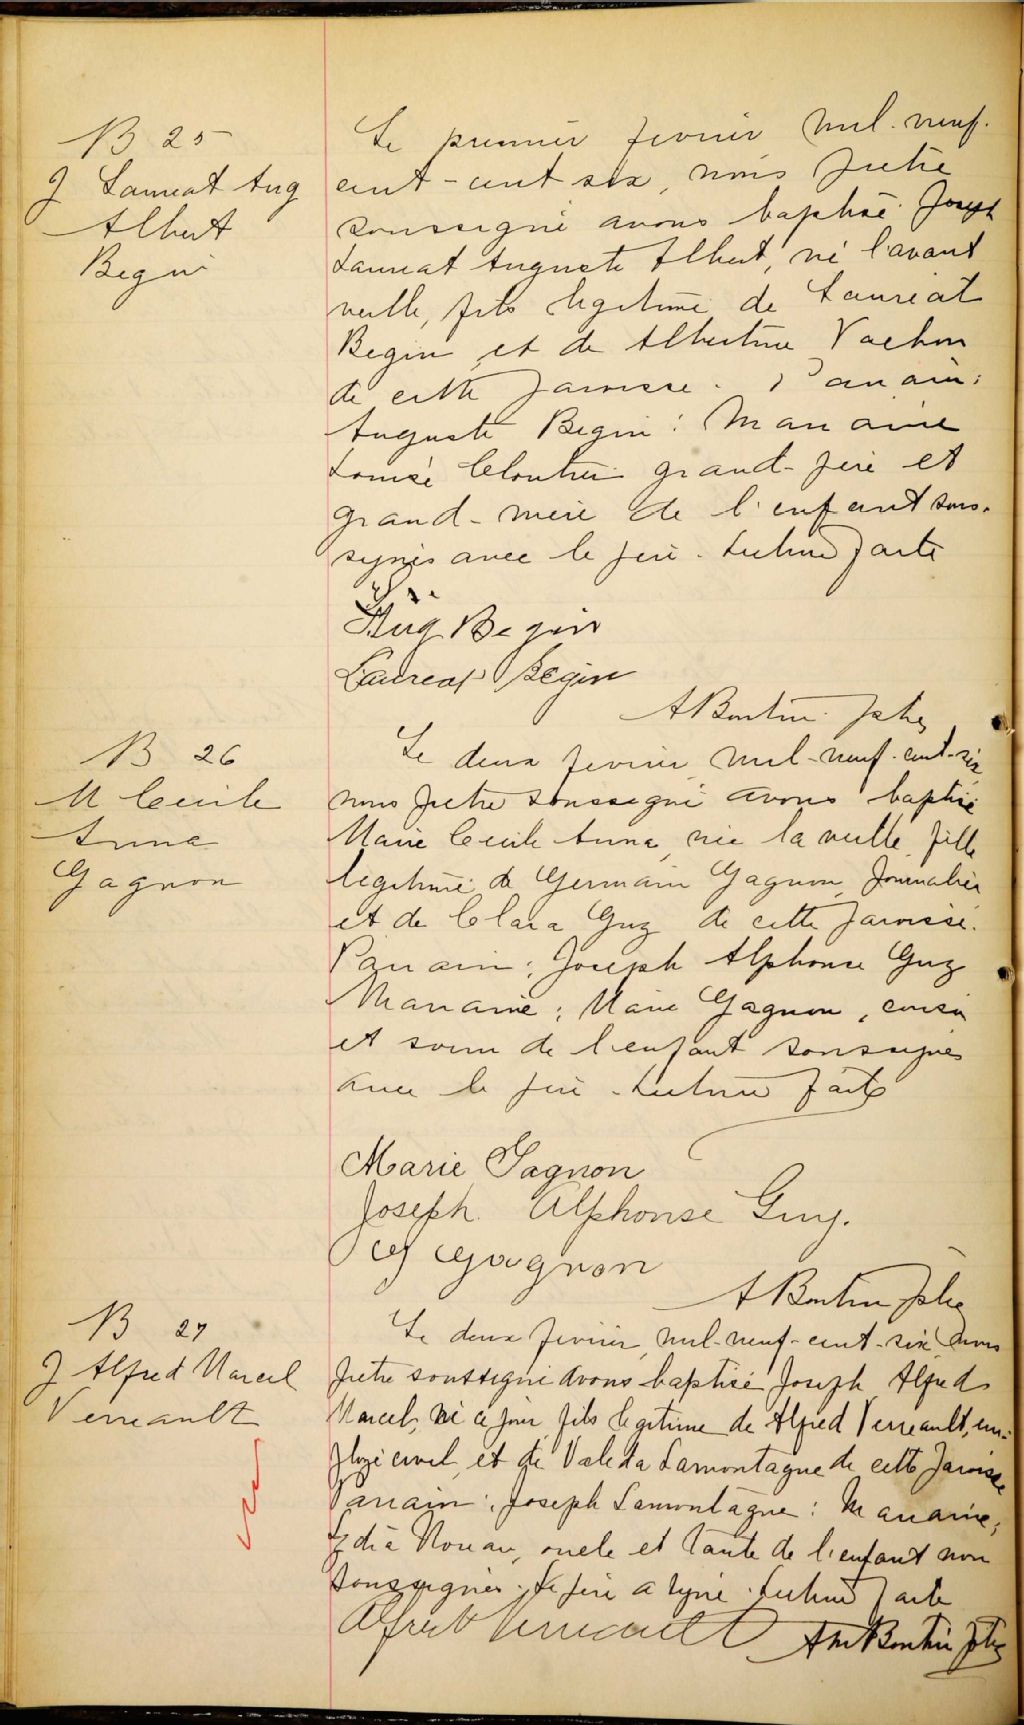 B 25
J Laureat Aug
Albert
Begin
Le premier fevrier mil-neuf-
cent-cent six, nous pretre
soussigné avons baptisé Joseph
Laureat Auguste Albert, né l'avant
veille, fils legitime de Laureat
Begin et de Albertine Vachon
de cette paroisse. Parrain:
Auguste Begin: Marraine
Louise Cloutier grand-père et
grand-mère de l'enfant sous-
signés avec le père. Lecture faite
Aug Begin
Laureat Begin
A Boutin Ptre
B 26
M Cecile
Anna
Gagnon
Le deux fevrier mil-neuf-cent-six
nous pretre soussigné avons baptisé
Marie Cecile Anna, née la veille, fille
legitime de Germain Gagnon, Journalier
et de Clara Guy de cette paroisse.
Parrain: Joseph Alphonse Guy
Marraine: Marie Gagnon, cousin
et soeur de l'enfant soussignés
avec le père. Lecture faite
Marie Gagnon
Joseph Alphonse Guy.
G Gagnon
A Boutin Ptre
B 27
J Alfred Marcel
Verreault
Le deux fevrier, mil-neuf-cent-six, nous
pretre soussigné avons baptisé Joseph Alfred
Marcel, né ce jour, fils legitime de Alfred Verreault, em-
ployé civil, et de Valeda Lamontagne de cette paroisse
Parrain: Joseph Lamontagne: Marraine,
Lydia, oncle et tante de l'enfant non
soussignés. Le père a signé. Lecture faite
Alfred Verreault
Boutin Ptre